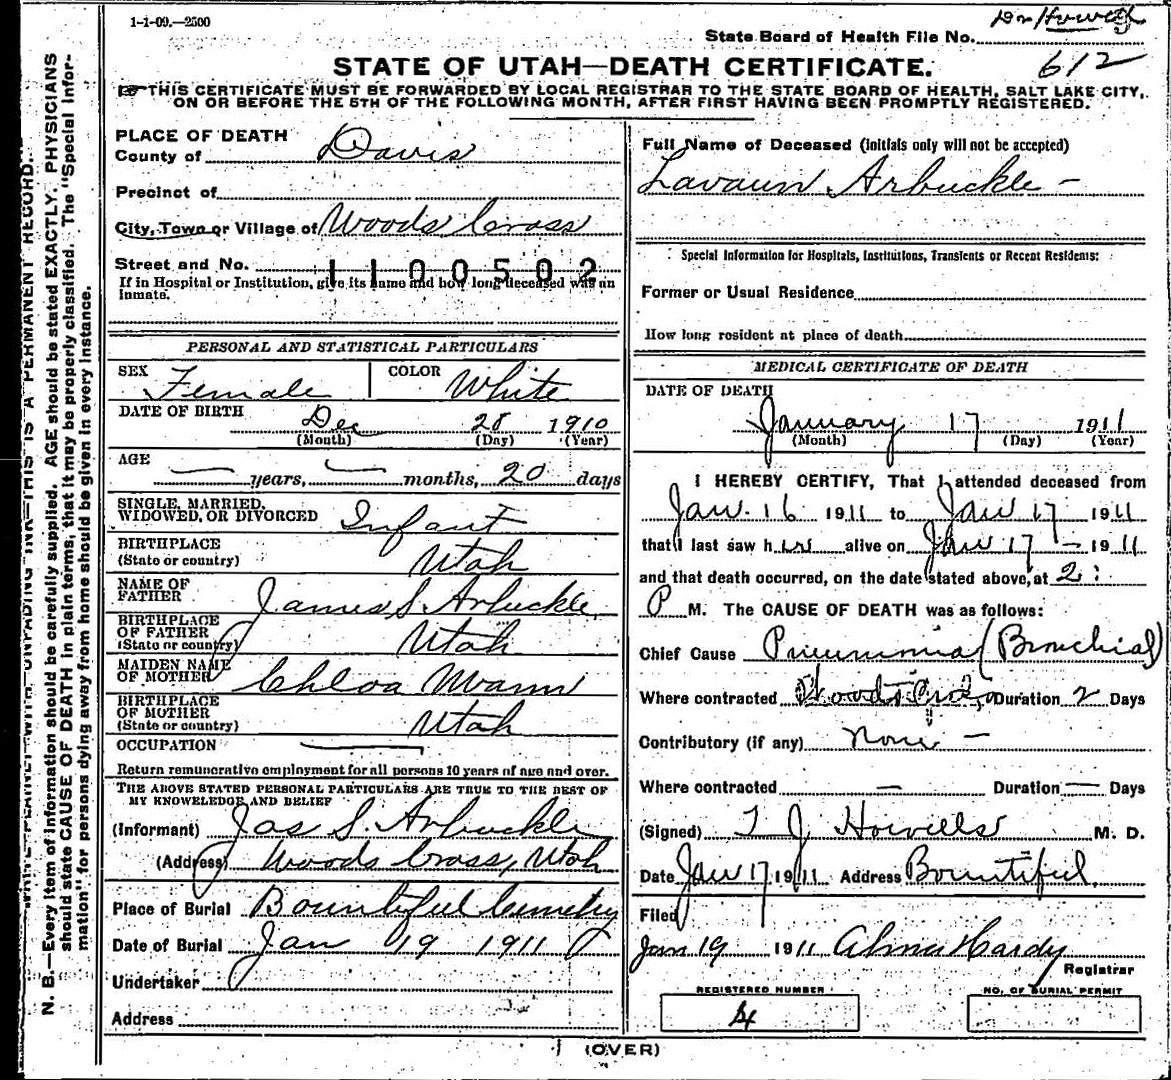 1-1-09.—2500
State Board of Health File No.
612
STATE OF UTAH—DEATH CERTIFICATE.
THIS CERTIFICATE MUST BE FORWARDED BY LOCAL REGISTRAR TO THE STATE BOARD OF HEALTH, SALT LAKE CITY,
ON OR BEFORE THE 5TH OF THE FOLLOWING MONTH, AFTER FIRST HAVING BEEN PROMPTLY REGISTERED.
N. B.—Every item of information should be carefully supplied. AGE should be stated EXACTLY. PHYSICIANS
should state CAUSE OF DEATH in plain terms, that it may be properly classified. The "Special Infor-
mation" for persons dying away from home should be given in every instance.
PLACE OF DEATH
County of Davis
Precinct of
City, Town or Village of Woods Cross
Street and No. 1100502
If in Hospital or Institution, give its name and how long deceased was an
inmate.
PERSONAL AND STATISTICAL PARTICULARS
SEX Female COLOR White
DATE OF BIRTH
Dec 28 1910
(Month) (Day) (Year)
AGE
— years, — months, 20 days
SINGLE, MARRIED,
WIDOWED, OR DIVORCED Infant
BIRTHPLACE
(State or country) Utah
NAME OF
FATHER James S. Arbuckle
BIRTHPLACE
OF FATHER
(State or country) Utah
MAIDEN NAME
OF MOTHER Chloa Mann
BIRTHPLACE
OF MOTHER
(State or country) Utah
OCCUPATION —
Return remunerative employment for all persons 10 years of age and over.
THE ABOVE STATED PERSONAL PARTICULARS ARE TRUE TO THE BEST OF
MY KNOWLEDGE AND BELIEF
(Informant) Jas S. Arbuckle
(Address) Woods Cross, Utah
Place of Burial Bountiful Cemetry
Date of Burial Jan 19 1911
Undertaker
Address
Full Name of Deceased (Initials only will not be accepted)
Lavaun Arbuckle —
Special Information for Hospitals, Institutions, Transients or Recent Residents:
Former or Usual Residence
How long resident at place of death
MEDICAL CERTIFICATE OF DEATH
DATE OF DEATH
January 17 1911
(Month) (Day) (Year)
I HEREBY CERTIFY, That I attended deceased from
Jan. 16 1911 to Jan 17 1911
that I last saw her alive on Jan 17 — 1911
and that death occurred, on the date stated above, at 2:
P M. The CAUSE OF DEATH was as follows:
Chief Cause Pneumonia (Bronchial)
Where contracted Woods Cross, Duration 2 Days
Contributory (if any) None —
Where contracted — Duration — Days
(Signed) T J Howells M. D.
Date Jan 17 1911 Address Bountiful.
Filed
Jan 19 1911 Alma Hardy
Registrar
REGISTERED NUMBER
4
NO. OF BURIAL PERMIT
(OVER)